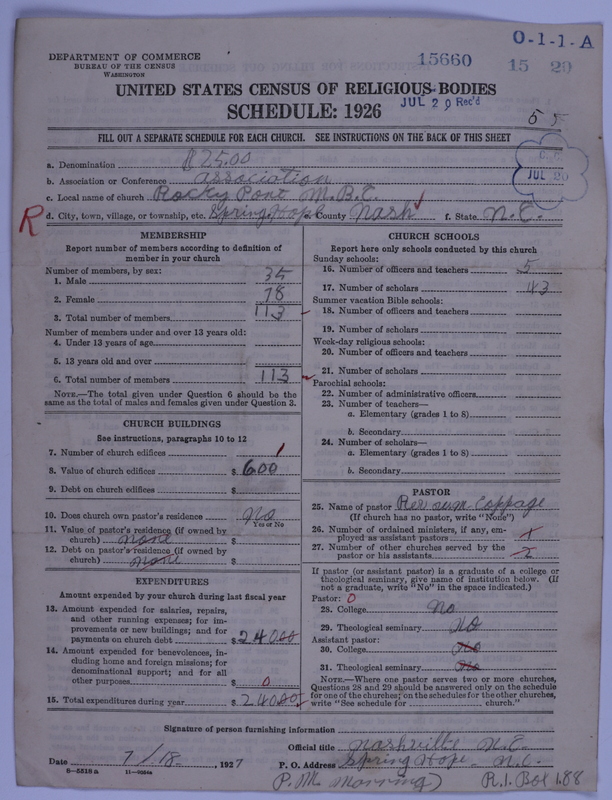 O-1-1-A
DEPARTMENT OF COMMERCE
BUREAU OF THE CENSUS
WASHINGTON
15660 15 29
UNITED STATES CENSUS OF RELIGIOUS BODIES
SCHEDULE: 1926
JUL 29 Rec'd
55
FILL OUT A SEPARATE SCHEDULE FOR EACH CHURCH. SEE INSTRUCTIONS ON THE BACK OF THIS SHEET
a. Denomination $25.00
b. Association or Conference association
c. Local name of church Rocky Pont M.B.C.
JUL 20
R d. City, town, village, or township, etc. Spring Hope e. County Nash f. State N.C.
MEMBERSHIP
Report number of members according to definition of
member in your church
Number of members, by sex:
1. Male 35
2. Female 78
3. Total number of members 113
Number of members under and over 13 years old:
4. Under 13 years of age
5. 13 years old and over
6. Total number of members 113
NOTE.—The total given under Question 6 should be the
same as the total of males and females given under Question 3.
CHURCH BUILDINGS
See instructions, paragraphs 10 to 12
7. Number of church edifices 1
8. Value of church edifices $600
9. Debt on church edifices $
10. Does church own pastor's residence no
Yes or No
11. Value of pastor's residence (if owned by
church) none $
12. Debt on pastor's residence (if owned by
church) none $
EXPENDITURES
Amount expended by your church during last fiscal year
13. Amount expended for salaries, repairs,
and other running expenses; for im-
provements or new buildings; and for
payments on church debt $240.00
14. Amount expended for benevolences, in-
cluding home and foreign missions; for
denominational support; and for all
other purposes $ 0
15. Total expenditures during year $240.00
CHURCH SCHOOLS
Report here only schools conducted by this church
Sunday schools:
16. Number of officers and teachers 5
17. Number of scholars 43
Summer vacation Bible schools:
18. Number of officers and teachers
19. Number of scholars
Week-day religious schools:
20. Number of officers and teachers
21. Number of scholars
Parochial schools:
22. Number of administrative officers
23. Number of teachers—
a. Elementary (grades 1 to 8)
b. Secondary
24. Number of scholars—
a. Elementary (grades 1 to 8)
b. Secondary
PASTOR
25. Name of pastor Rev Coppage
(If church has no pastor, write "None")
26. Number of ordained ministers, if any, em-
ployed as assistant pastors 1
27. Number of other churches served by the
pastor or his assistants 2
If pastor (or assistant pastor) is a graduate of a college or
theological seminary, give name of institution below. (If
not a graduate, write "No" in the space indicated.)
Pastor: 0
28. College no
29. Theological seminary No
Assistant pastor:
30. College No
31. Theological seminary No
NOTE.—Where one pastor serves two or more churches,
Questions 28 and 29 should be answered only on the schedule
for one of the churches; on the schedules for the other churches,
write "See schedule for church."
Signature of person furnishing information
Official title Nashville N.C.
Date 7/18, 1927 P. O. Address Spring Hope N.C.
8-5518 a
R.1. Box 188